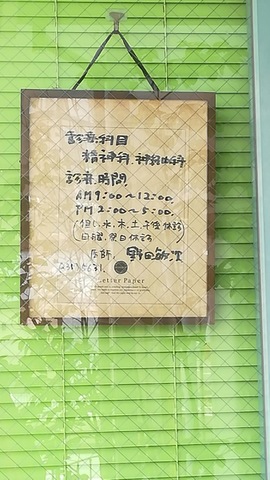 診療科目
精神科、神経内科
診療時間
AM9:00～12:00
PM2:00～5:00
(但し、水、木、土、午後休診
日曜、祭日休診)
医師、野田
Letter Paper